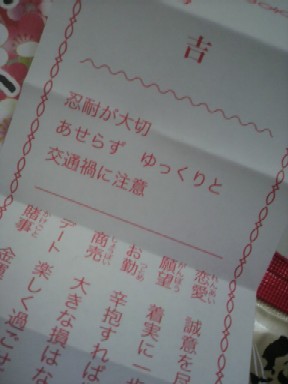 吉
忍耐が大切
あせらず ゆっくりと
交通禍に注意
恋愛 誠意を
願望 着実に一歩
お勤 辛抱すれば
商売 大きな損はな
デート 楽しく過ごせ
賭事